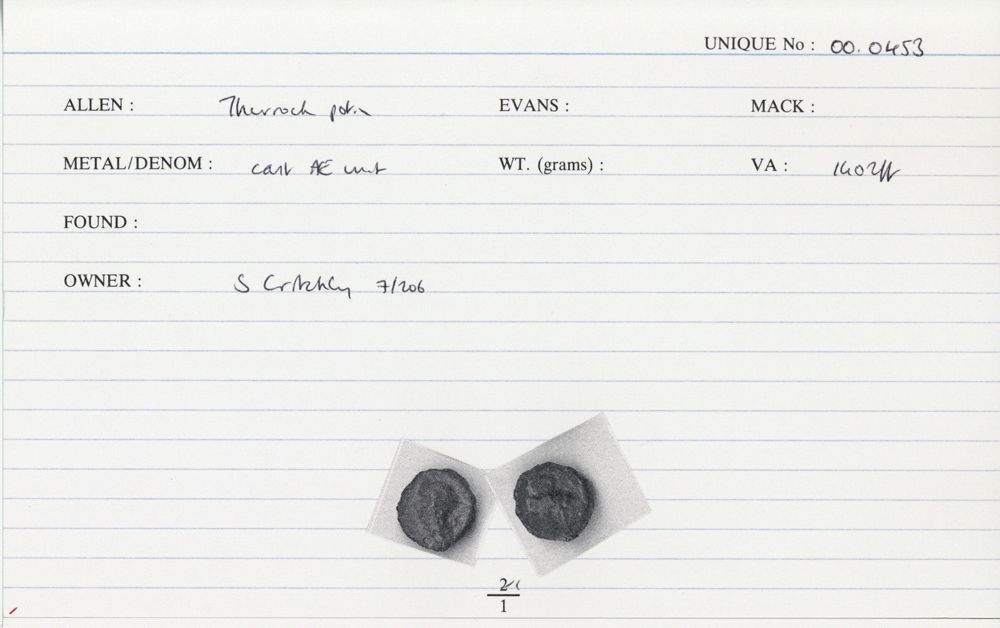 UNIQUE No : 00. 0453
ALLEN : Thurrock potin EVANS : MACK :
METAL/DENOM : cast AE unit WT. (grams) : VA : 1402ff
FOUND :
OWNER : S Critchley 7/206
2
1